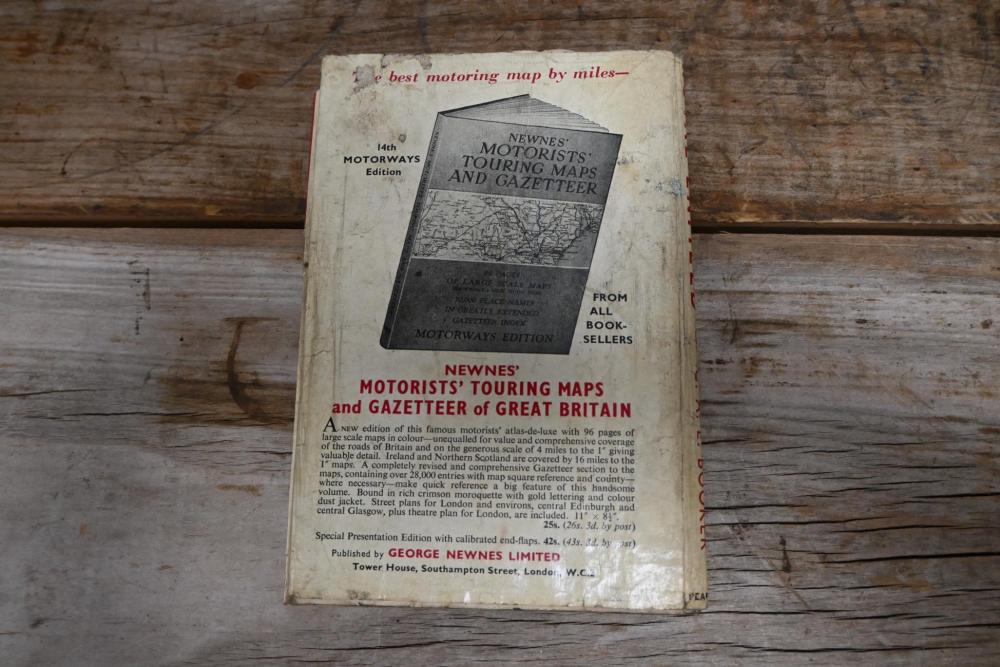 The best motoring map by miles—
14th
MOTORWAYS
Edition
NEWNES'
MOTORISTS'
TOURING MAPS
AND GAZETTEER
OF LARGE SCALE MAPS
PLACE-NAMES
IN GREATLY EXTENDED
GAZETTEER INDEX
MOTORWAYS EDITION
FROM
ALL
BOOK-
SELLERS
NEWNES'
MOTORISTS' TOURING MAPS
and GAZETTEER of GREAT BRITAIN
A NEW edition of this famous motorists' atlas-de-luxe with 96 pages of
large scale maps in colour—unequalled for value and comprehensive coverage
of the roads of Britain and on the generous scale of 4 miles to the 1" giving
valuable detail. Ireland and Northern Scotland are covered by 16 miles to the
1" maps. A completely revised and comprehensive Gazetteer section to the
maps, containing over 28,000 entries with map square reference and county—
where necessary—make quick reference a big feature of this handsome
volume. Bound in rich crimson moroquette with gold lettering and colour
dust jacket. Street plans for London and environs, central Edinburgh and
central Glasgow, plus theatre plan for London, are included. 11" × 8½".
25s. (26s. 3d. by post)
Special Presentation Edition with calibrated end-flaps. 42s. (43s. 3d. by post)
Published by GEORGE NEWNES LIMITED
Tower House, Southampton Street, London, W.C.2